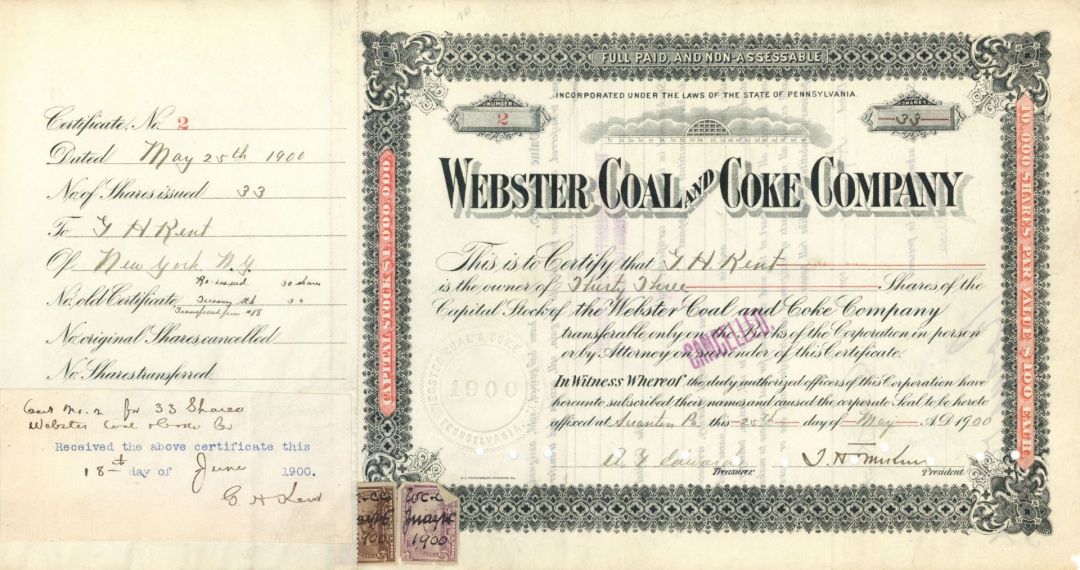 Certificate, No. 2
Dated May 25th 1900
No. of Shares issued 33
To G H Kent
Of New York N.Y.
Re-issued 30 shares
No. old Certificate, Treasury stk 3
Transferred from #18
No. original Shares cancelled
No. Shares transferred
Cert No. 2 for 33 Shares
Webster Coal & Coke Co
Received the above certificate this
18th day of June 1900.
G H Kent
FULL PAID, AND NON-ASSESSABLE
INCORPORATED UNDER THE LAWS OF THE STATE OF PENNSYLVANIA.
NUMBER
2
SHARES
33
WEBSTER COAL AND COKE COMPANY
CAPITAL STOCK $1,000,000
10,000 SHARES PAR VALUE $100 EACH
This is to Certify that G. H. Kent
is the owner of Thirty Three Shares of the
Capital Stock of the Webster Coal and Coke Company
transferable only on the Books of the Corporation in person
or by Attorney on surrender of this Certificate.
CANCELLED.
WEBSTER COAL & COKE
1900
PENNSYLVANIA.
In Witness Whereof the duly authorized officers of this Corporation have
hereunto subscribed their names and caused the corporate Seal to be hereto
affixed at Scranton Pa. this 25th day of May A.D. 1900
Treasurer.
President.
W C & C
May
1900